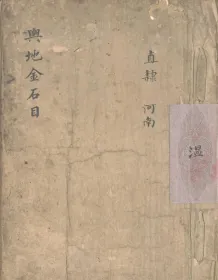 輿地金石目
直隸 河南
溫